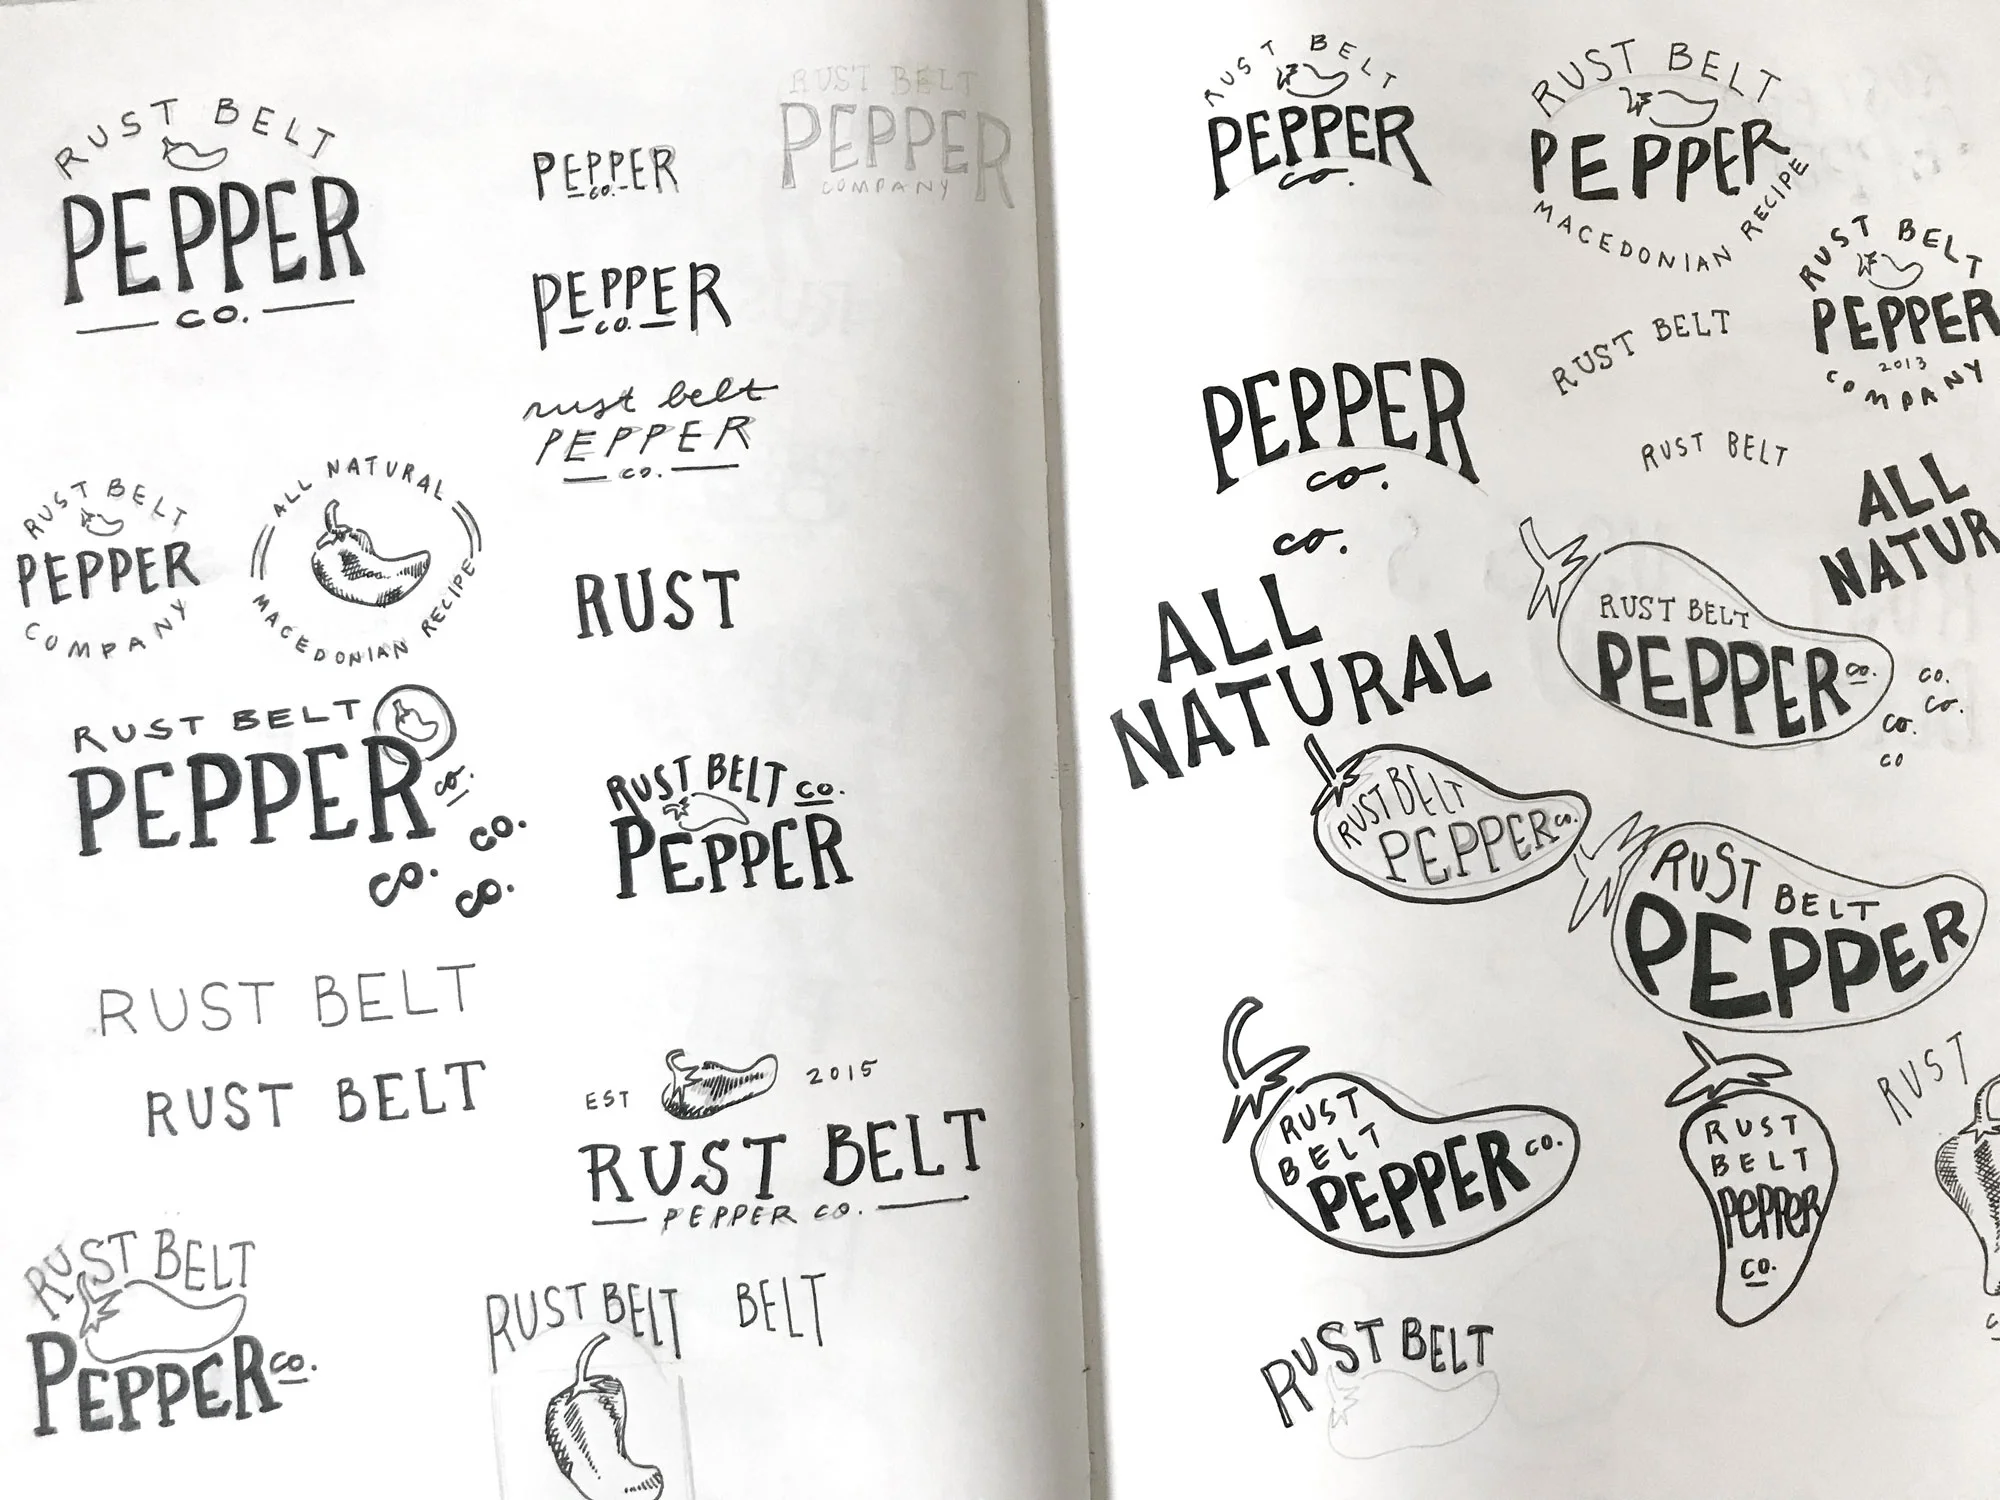 RUST BELT
PEPPER
CO.
PEPPER
CO.
RUST BELT
PEPPER
COMPANY
PEPPER
CO.
rust belt
PEPPER
CO.
RUST BELT
PEPPER
COMPANY
ALL NATURAL
MACEDONIAN RECIPE
RUST
RUST BELT
PEPPER
co.
co.
co.
co.
RUST BELT CO.
PEPPER
RUST BELT
RUST BELT
EST 2015
RUST BELT
PEPPER CO.
RUST BELT
PEPPER CO.
RUST BELT BELT
RUST BELT
PEPPER
co.
RUST BELT
PEPPER
MACEDONIAN RECIPE
RUST BELT
PEPPER
2013
COMPANY
RUST BELT
PEPPER
co.
RUST BELT
co.
ALL
NATUR
ALL
NATURAL
RUST BELT
PEPPER co.
co.
co.
co.
co
RUST BELT
PEPPER co.
RUST BELT
PEPPER
RUST
BELT
PEPPER CO.
RUST
BELT
PePPeR
CO.
RUST
RUST BELT